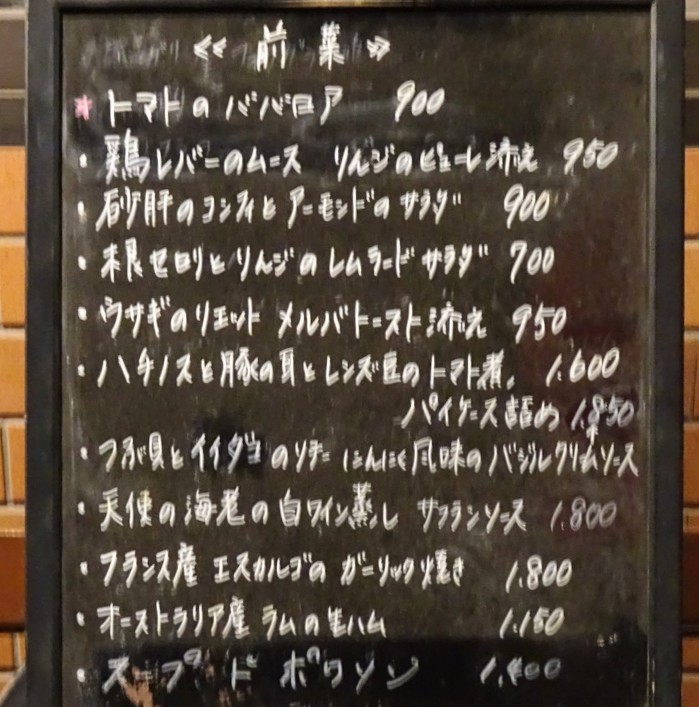 《 前菜 》
* トマトのババロア 900
・鶏レバーのムース りんごのピューレ添え 950
・砂肝のコンフィとアーモンドのサラダ 900
・根セロリとりんごのレムラードサラダ 700
・ウサギのリエット メルバトースト添え 950
・ハチノスと豚の耳とレンズ豆のトマト煮。 1.600
パイケース詰め 1.850
・つぶ貝とイイダコのソテー にんにく風味のバジルクリームソース
・天使の海老の白ワイン蒸し サフランソース 1.800
・フランス産 エスカルゴのガーリック焼き 1.800
・オーストラリア産 ラムの生ハム 1.150
・スープ ド ポワソン 1.400